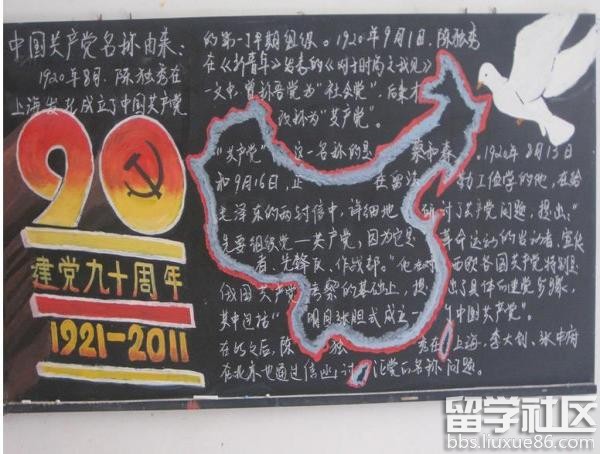 中国共产党名称由来：
1920年8月，陈独秀在
上海发起成立了中国共产党
的第一个早期组织。1920年9月1日，陈独秀
在《新青年》发表的《对于时局之我见》
一文中，曾称吾党为"社会党"，后来才
改称为"共产党"。
"共产党"这一名称的是 蔡和森。1920年8月13日
和9月16日，正在 留法勤工俭学的他，在给
毛泽东的两封信中，详细地 研讨了共产党问题，提出："
先要组织党—共产党，因为它是 革命运动的发动者、宣传
者、先锋队、作战部。"他 西欧各国共产党特别是
俄国共产党考察的基础上，提 出了具体的建党步骤，
其中包括"明目张胆式成立一 中国共产党"。
在此之后，陈独 秀在上海，李大钊、张申府
在北京也通过信函讨 论党的名称问题。
90
建党九十周年
1921-2011
留学社区
bbs.liuxue86.com